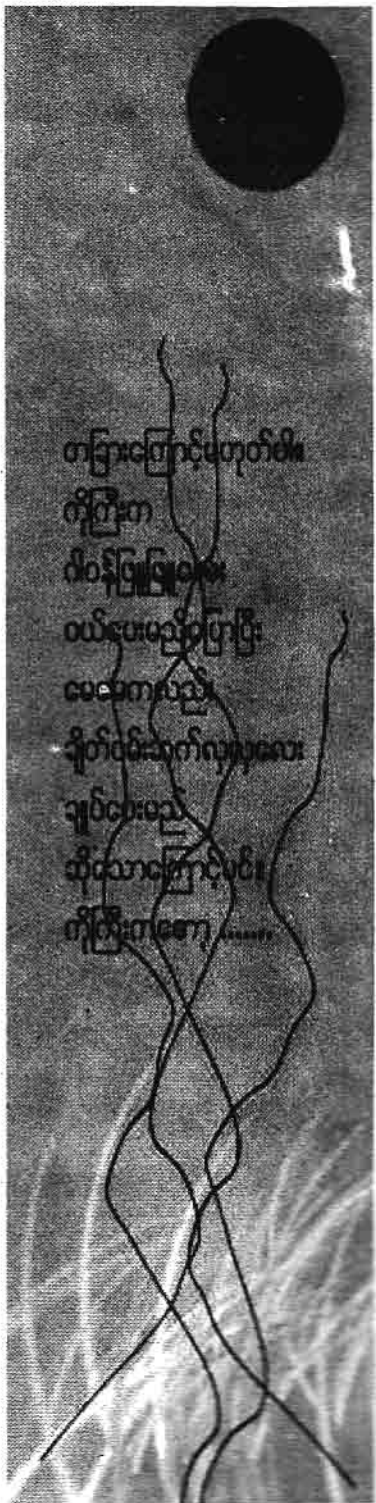 တခြားကြောင့်မဟုတ်ပါ။
ကိုကြီးက
ဂါဝန်ဖြူဖြူလေး
ဝယ်ပေးမည်ပြောပြီး
မေမေကလည်း
ချိတ်ဝမ်းဆက်လှလှလေး
ချုပ်ပေးမည်
ဆိုသောကြောင့်ပင်။
ကိုကြီးကတော့ .......